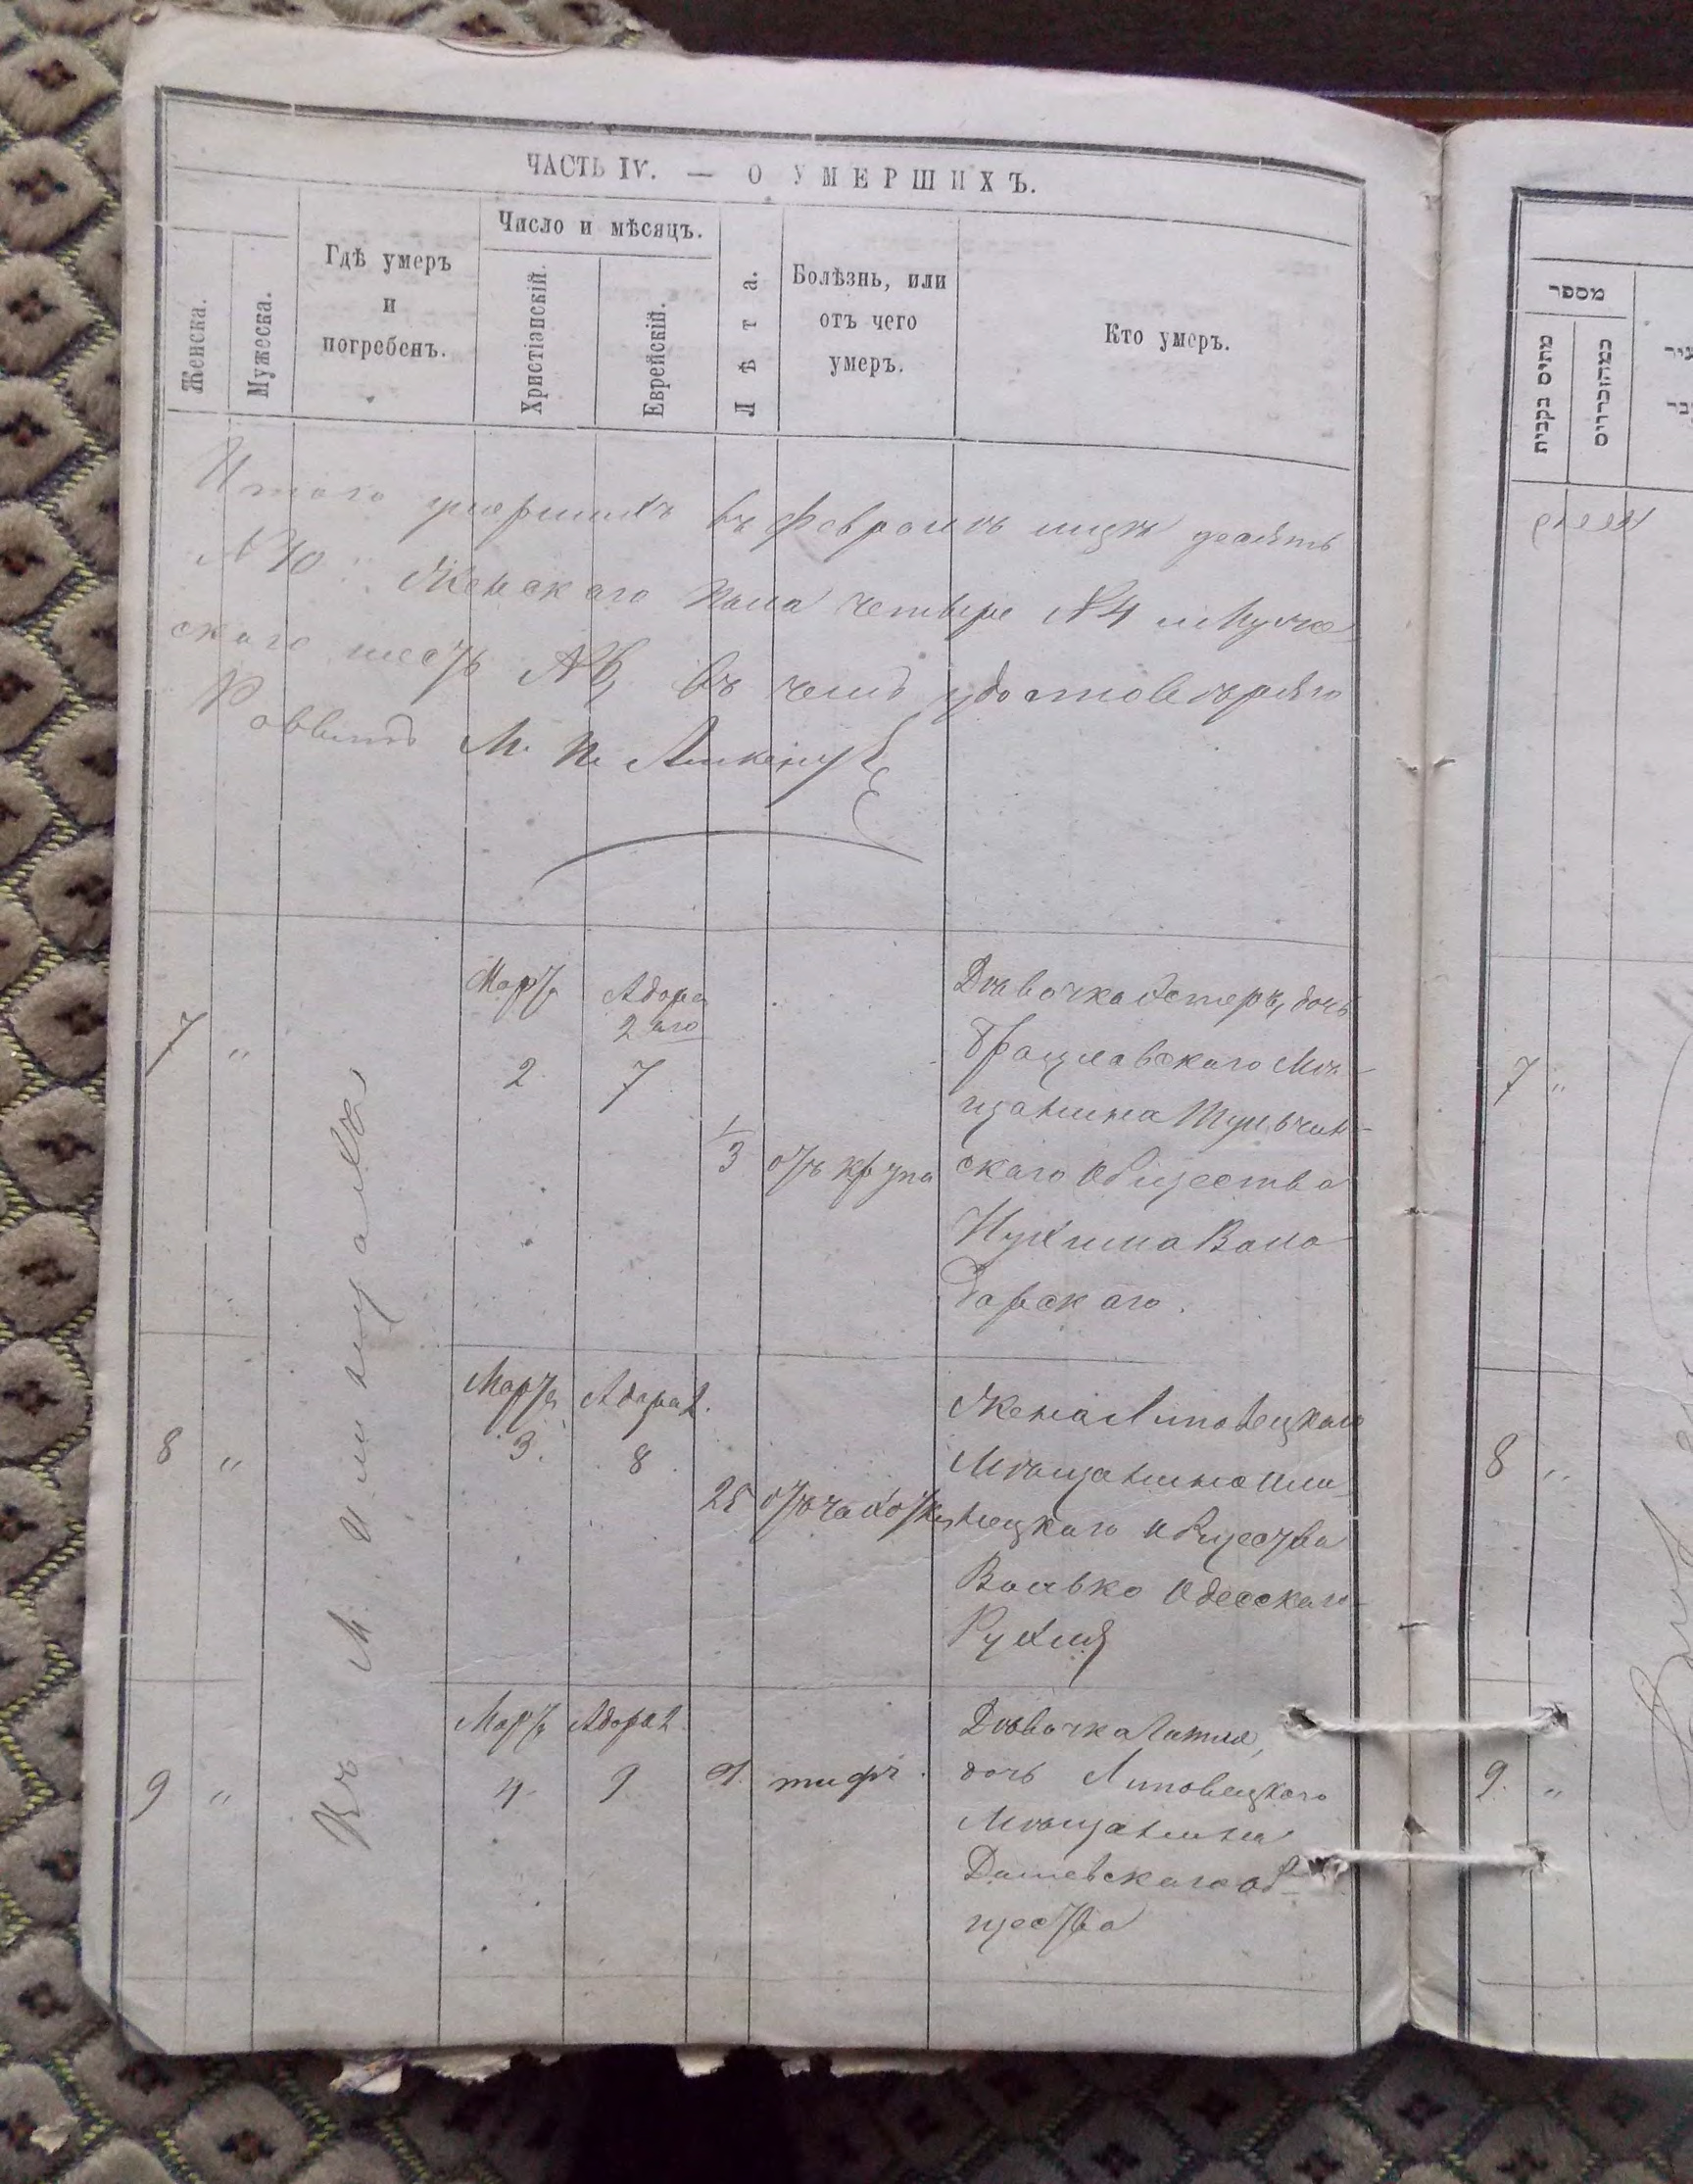 ЧАСТЬ IV. — О УМЕРШИХЪ.
Женска.
Мужеска.
Гдѣ умеръ
и
погребенъ.
Число и мѣсяцъ.
Христіанскій.
Еврейскій.
Лѣта.
Болѣзнь, или
отъ чего
умеръ.
Кто умеръ.
Итого умершихъ въ Февралѣ мцѣ десять
№ 10. Женскаго пола четыре № 4 и Муже
скаго шесть № 6, въ чемъ удостовѣряю
Раввинъ М.
Въ М. Ильинцахъ
7 " Мартъ 2 Адара 2аго 7 1/3 отъ крупа
Дѣвочка Эстеръ, дочь
Брацлавскаго Мѣ-
щанина Тульчин-
скаго Общества
Нухима Воло
дарскаго.
8 " Марта 3. Адара 2. 8 25 отъ чахотки
Жена Липовецкаго
Мѣщанина Или-
нецкаго Общества
Волько Одесскаго
Рухля
9 " Марта 4 Адара 2 9 тифъ.
Дѣвочка
дочь Липовецкаго
Мѣщанина
Дашевскаго об-
щества
מספר
מתים נקבות
7 "
8 "
9. "